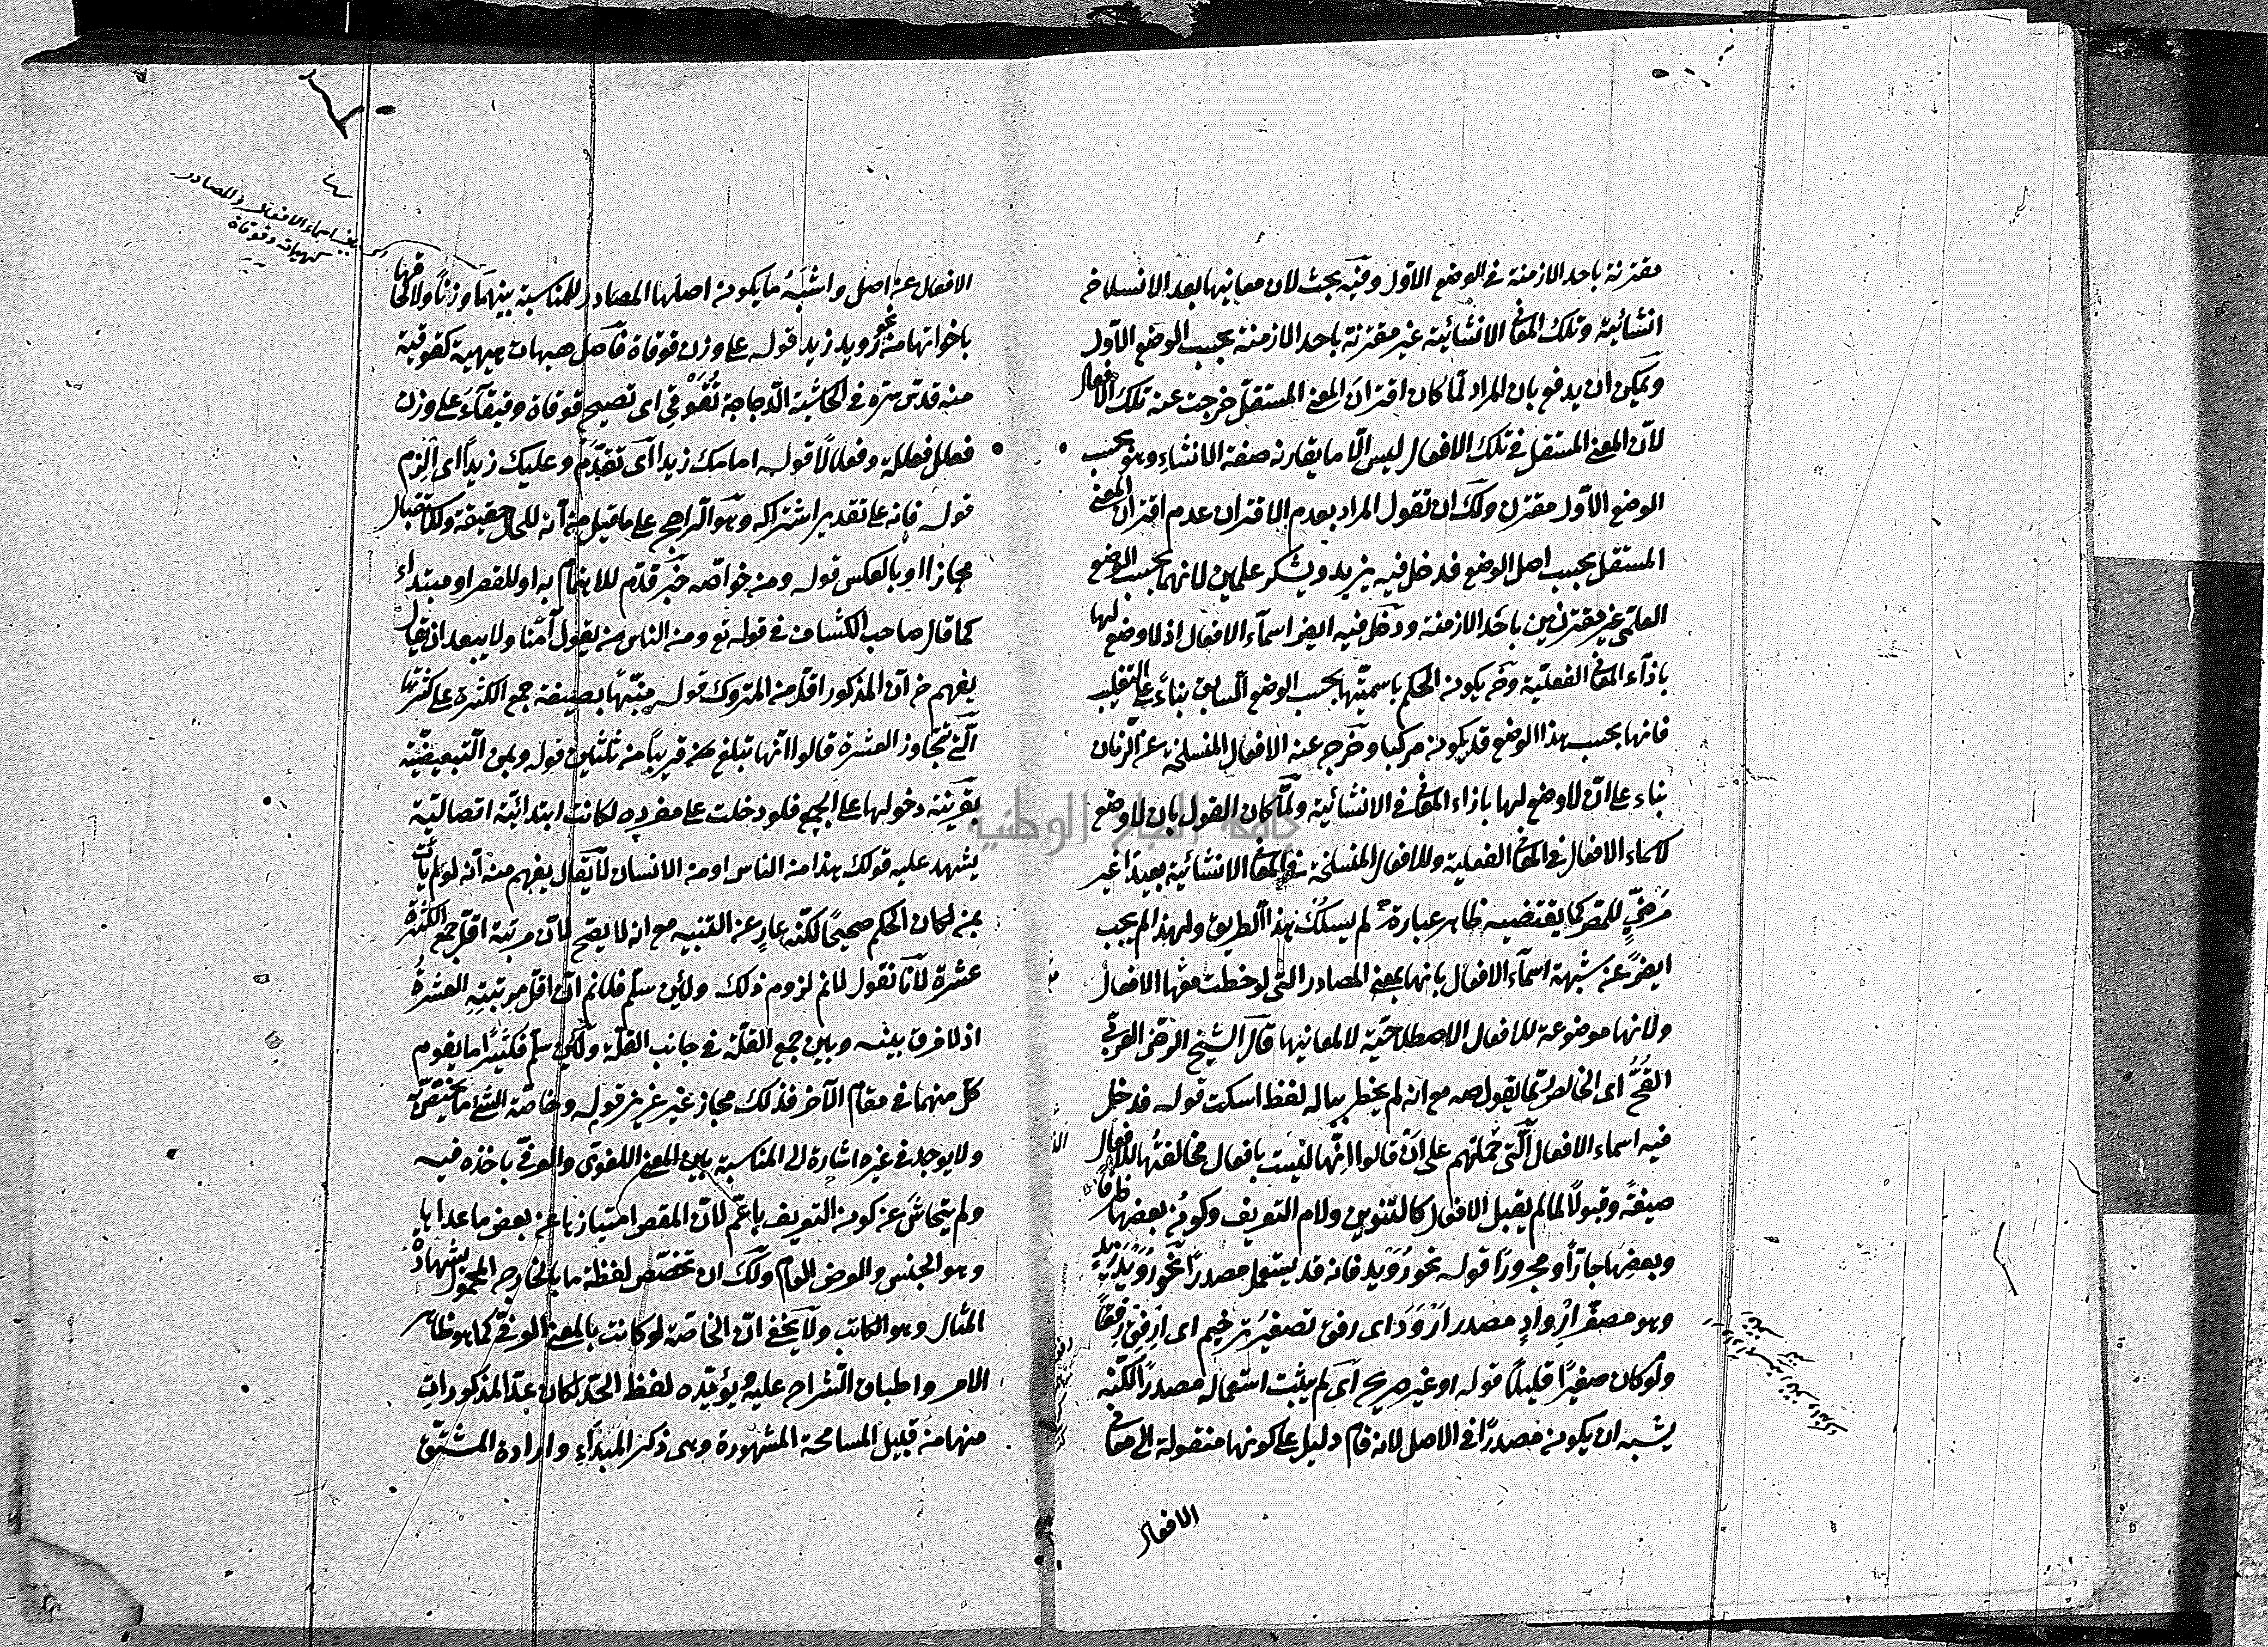 مقترنة باحد الازمنة في الوضع الاول وفيه بحث لان معانيها بعد الانسلاخ
انشائية وتلك المعاني الانشائية غير مقترنة باحد الازمنة بحسب الوضع الاول
ويمكن ان يدفع بان المراد لما كان اقتران المعنى المستقل خرجت عنه تلك الافعال
لان المعنى المستقل في تلك الافعال ليس الا ما يقارنه صفة الانشاء وهو بحسب
الوضع الاول مقترن ولك ان تقول المراد بعدم الاقتران عدم اقتران المعنى
المستقل بحسب اصل الوضع فدخل فيه يزيد ويشكر علمين لانهما بحسب الوضع
العلمي غير مقترنين باحد الازمنة ودخل فيه ايضا اسماء الافعال اذ لا وضع لها
بازاء المعاني الفعلية وح يكون الحكم باسميتها بحسب الوضع السابق بناء على التغليب
فانها بحسب هذا الوضع قد يكون مركبا وخرج عنه الافعال المنسلخة عن الزمان
بناء على ان لا وضع لها بازاء المعاني الانشائية ولما كان القول بان لا وضع
لاسماء الافعال في المعاني الفعلية وللافعال المنسلخة في المعاني الانشائية بعيدا غير
مرضي للمص كما يقتضيه ظاهر عبارته لم يسلك هذا الطريق ولهذا لم يجب
ايضا عن شبهة اسماء الافعال بانها بمعنى المصادر التي لوحظت معها الافعال
ولانها موضوعة للافعال الاصطلاحية لا لمعانيها قال الشيخ الرضي العربي
القح اى الخالص ربما يقول صه مع انه لم يخطر بباله لفظ اسكت قوله فدخل
فيه اسماء الافعال التي حملتهم على ان قالوا انها ليست بافعال مخالفتها للافعال
صيغة وقبولا لما لم يقبل الافعال كالتنوين ولام التعريف وكون بعضها ظرفا
وبعضها جارا ومجرورا قوله نحو رويد فانه قد يستعمل مصدرا نحو رويد زيد
وهو مصغر ارواد مصدر ارود اى رفق تصغير ترخيم اى ارفق رفقا
ولو كان صغيرا قليلا قوله او غير صريح اى لم يثبت استعماله مصدرا لكنه
يشبه ان يكون مصدرا في الاصل لانه قام دليل على كونها منقولة الى معاني
الافعال
الافعال عن اصل واشبه ما يكون اصلها المصادر للمناسبة بينهما وزنا ولالحاقها
باخواتها من نحو رويد زيدا قوله على وزن قوقاة فاصل هيهات هيهية كقوقية
منه قدس سره في الحاشية الدجاجة تقوقي اى تصيح قوقاة وقيقاء على وزن
فعلل فعللة وفعلالا قوله امامك زيدا اى تقدم وعليك زيدا اى الزم
قوله فانه على تقدير اشتراكه وهو الراجح على ما قيل من انه للحال حقيقة وللاستقبال
مجازا او بالعكس قوله ومن خواصه خبر قدم للاهتمام به او للقصر او مبتداء
كما قال صاحب الكشاف في قوله تع ومن الناس من يقول آمنا ولا يبعد ان يقال
يفهم ح ان المذكور اقل من المتروك قوله منبها بصيغة جمع الكثرة على كثرتها
التي تتجاوز العشرة قالوا انها تبلغ قريبا من ثلثين قوله وبمن التبعيضية
بقرينة دخولها على الجمع فلو دخلت على مفرده لكانت ابتدائية اتصالية
يشهد عليه قولك هذا من الناس او من الانسان لا يقال يفهم منه انه لو لم يأت
بمن لكان الحكم صحيحا لكنه عار عن التنبيه مع انه لا يصح لان مرتبة اقل جمع الكثرة
عشرة لانا نقول لانم لزوم ذلك ولئن سلم فلانم ان اقل مرتبته العشرة
اذ لا فرق بينه وبين جمع القلة في جانب القلة ولئن سلم فكثيرا ما يقوم
كل منهما في مقام الآخر فذلك مجاز غير عزيز قوله وخاصة الشئ ما يختص به
ولا يوجد في غيره اشارة الى المناسبة بين المعنى اللغوى والعرفي باخذه فيه
ولم يتحاش عن كون التعريف باعم لان المقص امتيازها عن بعض ما عداها
وهو الجنس والعرض العام ولك ان تخصص لفظة ما بالخارج المحمول بشهادة
المثال وهو الكاتب ولا يخفى ان الخاصة لو كانت بالمعنى العرفي كما هو ظاهر
الامر واطباق الشراح عليه ويؤيده لفظ الحد لكان عد المذكورات
منها من قبيل المسامحة المشهورة وهى ذكر المبداء وارادة المشتق
اسماء الافعال والمصادر
كهيهات وقوقاة
جامعة النجاح الوطنية